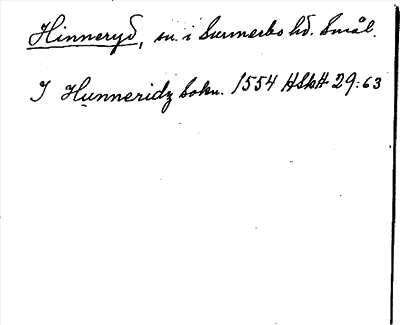 Hinneryd, sn. i Sunnerbo hd. Smål.
I Hunneridz sokn. 1554 HSkH 29:63